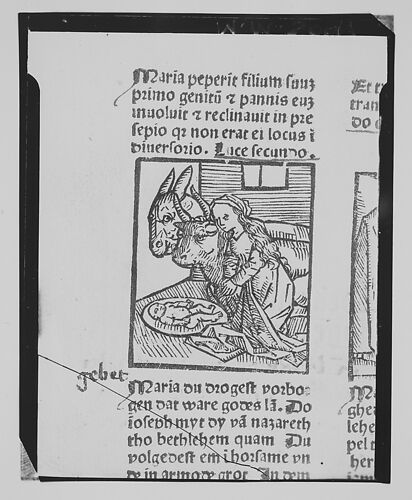 Maria peperit filium suuʒ
primo genitū ⁊ pannis euʒ
inuoluit ⁊ reclinauit in pre
sepio qr non erat ei locus ī
diuersorio. Luce secundo.
gebet
Maria du drogest vorbo⸗
gen dat ware godes lā. Do
ioseph myt dy vā nazareth
tho bethlehem quam Du
volgedest em ī horsame vn
dy in armody grot In dem
Et
tran
do
Ma
ghe
lehe
pel t
her